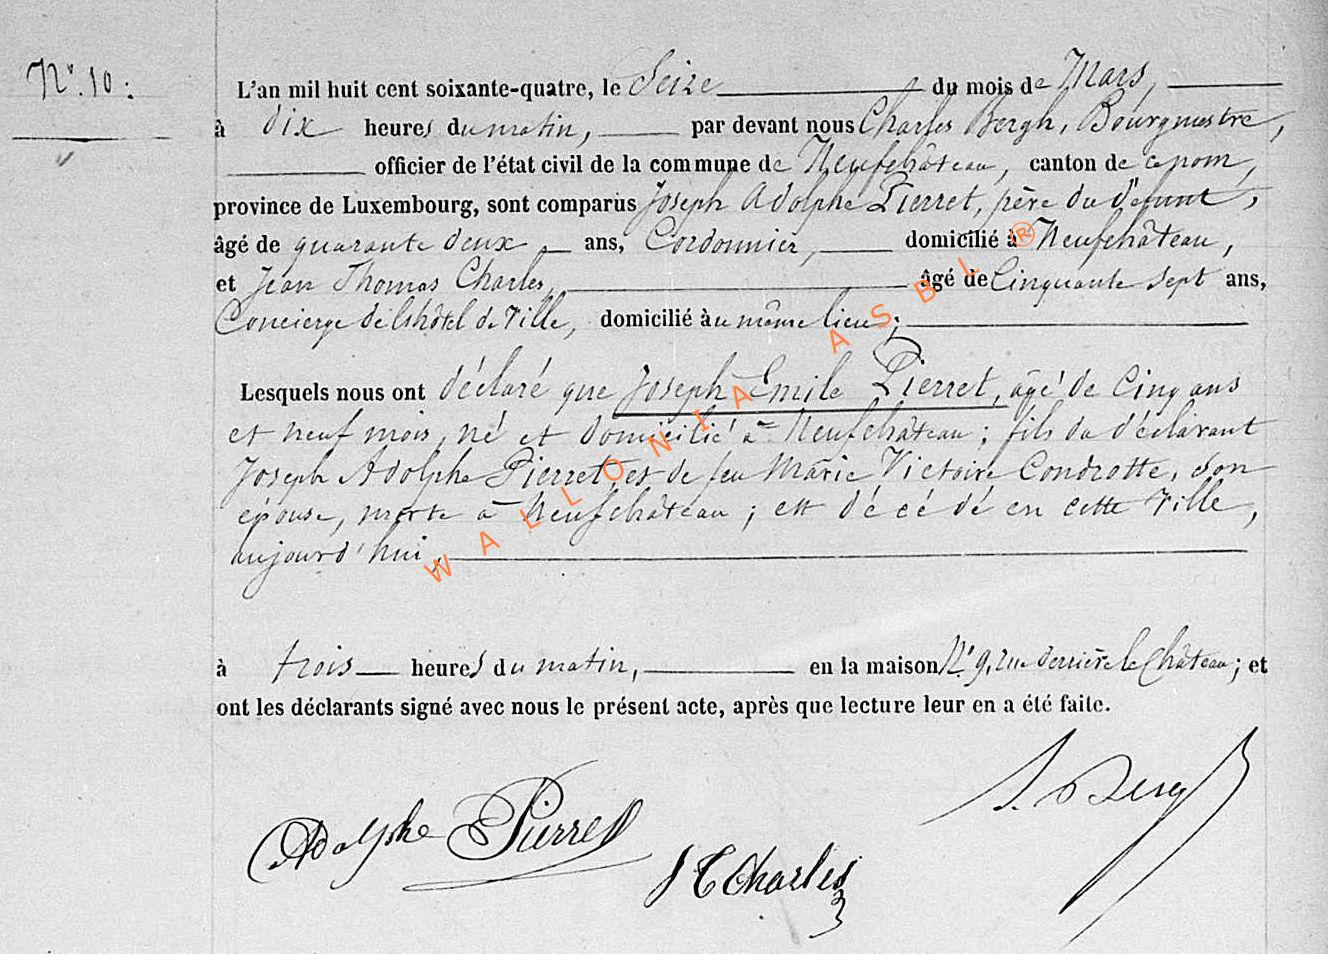 N.° 10.
L'an mil huit cent soixante-quatre, le Seize du mois de Mars,
à dix heures du matin, par devant nous Charles Bergh, Bourgmestre,
officier de l'état civil de la commune de Neufchâteau, canton de ce nom,
province de Luxembourg, sont comparus Joseph Adolphe Pierret, père du défunt,
âgé de quarante deux ans, Cordonnier, domicilié à Neufchâteau,
et Jean Thomas Charles, âgé de Cinquante sept ans,
Concierge de l'hôtel de Ville, domicilié au même lieu;
Lesquels nous ont déclaré que Joseph Emile Pierret, âgé de Cinq ans
et neuf mois, né et domicilié à Neufchâteau; fils du déclarant
Joseph Adolphe Pierret, et de feu Marie Victoire Condrotte, son
épouse, morte à Neufchâteau; est décédé en cette Ville,
aujourd'hui,
à trois heures du matin, en la maison N.° 9, rue derrière le Château; et
ont les déclarants signé avec nous le présent acte, après que lecture leur en a été faite.
Adolphe Pierret
J T Charles
WALLONIA ASBL ®